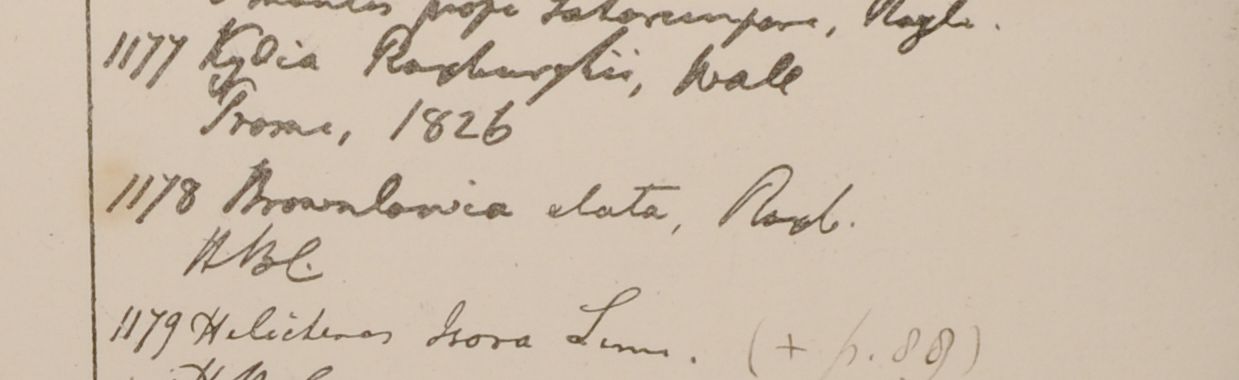 montes prope Satorumpore, Rayle.
1177 Kydia Roxburghii, Wall
Prome, 1826
1178 Brownlowia elata, Roxb.
HBC.
1179 Helicteras Isora Linn. (+ p. 88)
HBC